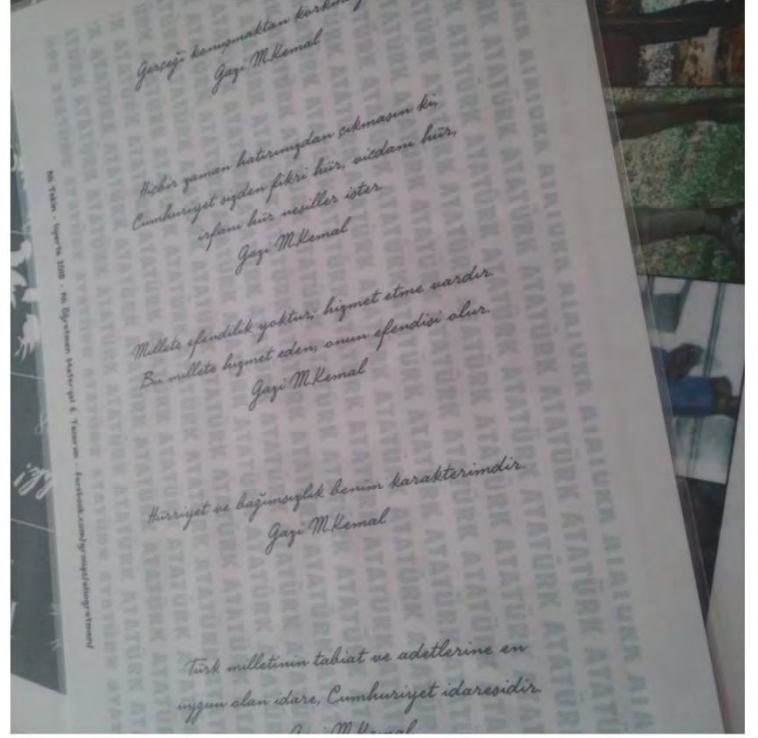 Gerçeği konuşmaktan
Gazi M.Kemal
Hiçbir zaman hatırınızdan çıkmasın ki,
Cumhuriyet sizden fikri hür, vicdanı hür,
irfanı hür nesiller ister.
Gazi M.Kemal
Millete efendilik yoktur; hizmet etme vardır.
Bu millete hizmet eden, onun efendisi olur.
Gazi M.Kemal
Hürriyet ve bağımsızlık benim karakterimdir.
Gazi M.Kemal
Türk milletinin tabiat ve adetlerine en
uygun olan idare, Cumhuriyet idaresidir.
Gazi M.Kemal
ATATÜRK ATATÜRK ATATÜRK ATATÜRK